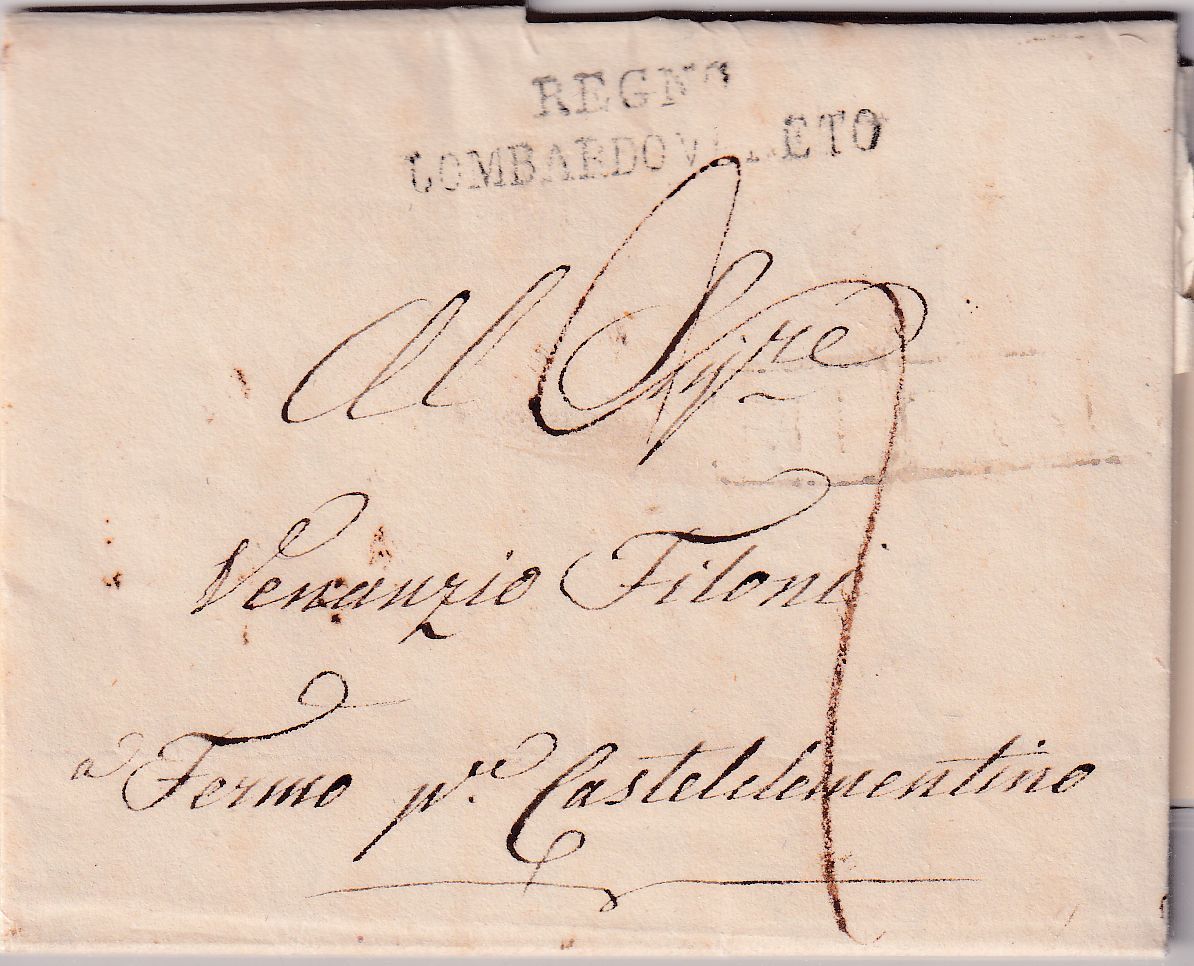 REGNO
LOMBARDO VENETO
Al Sig.re
Venanzio Filoni
a Fermo p. Castelclementino